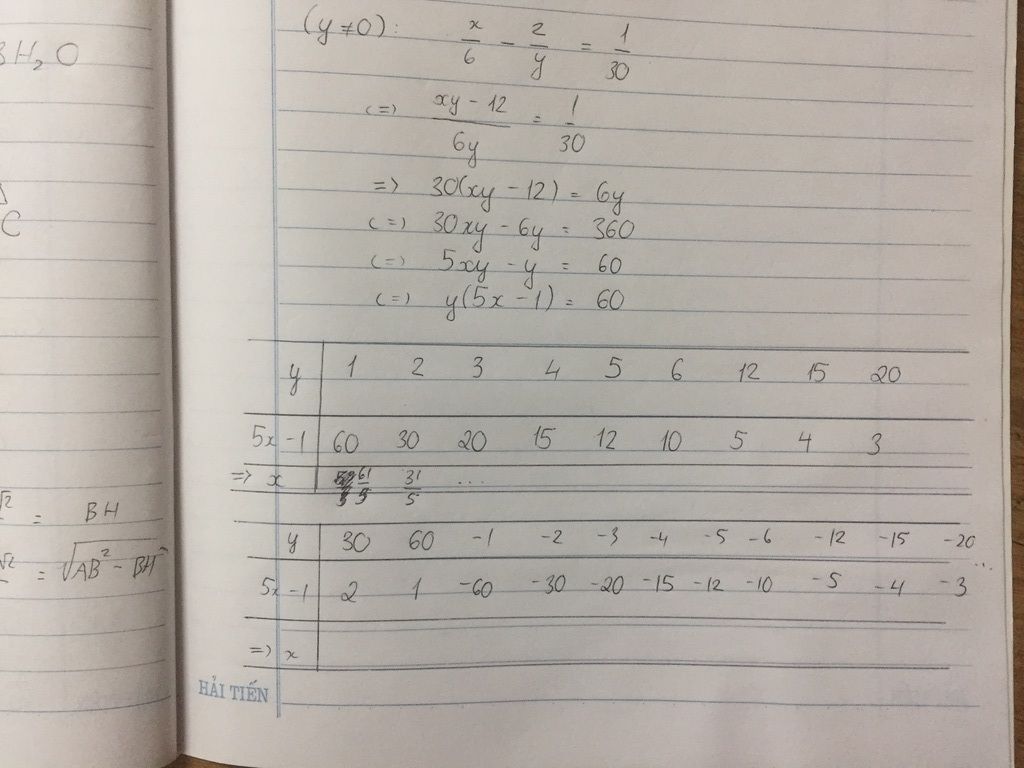 BH₂O
C
√2 = BH
√2 = √AB² - BH²
(y ≠ 0): x/6 - 2/y = 1/30
(=) xy - 12/6y = 1/30
=> 30(xy - 12) = 6y
(=) 30xy - 6y = 360
(=) 5xy - y = 60
(=) y(5x - 1) = 60
y 1 2 3 4 5 6 12 15 20
5x - 1 60 30 20 15 12 10 5 4 3
=> x 61/5 31/5 ...
y 30 60 -1 -2 -3 -4 -5 -6 -12 -15 -20 ...
5x - 1 2 1 -60 -30 -20 -15 -12 -10 -5 -4 -3
=> x
HẢI TIẾN